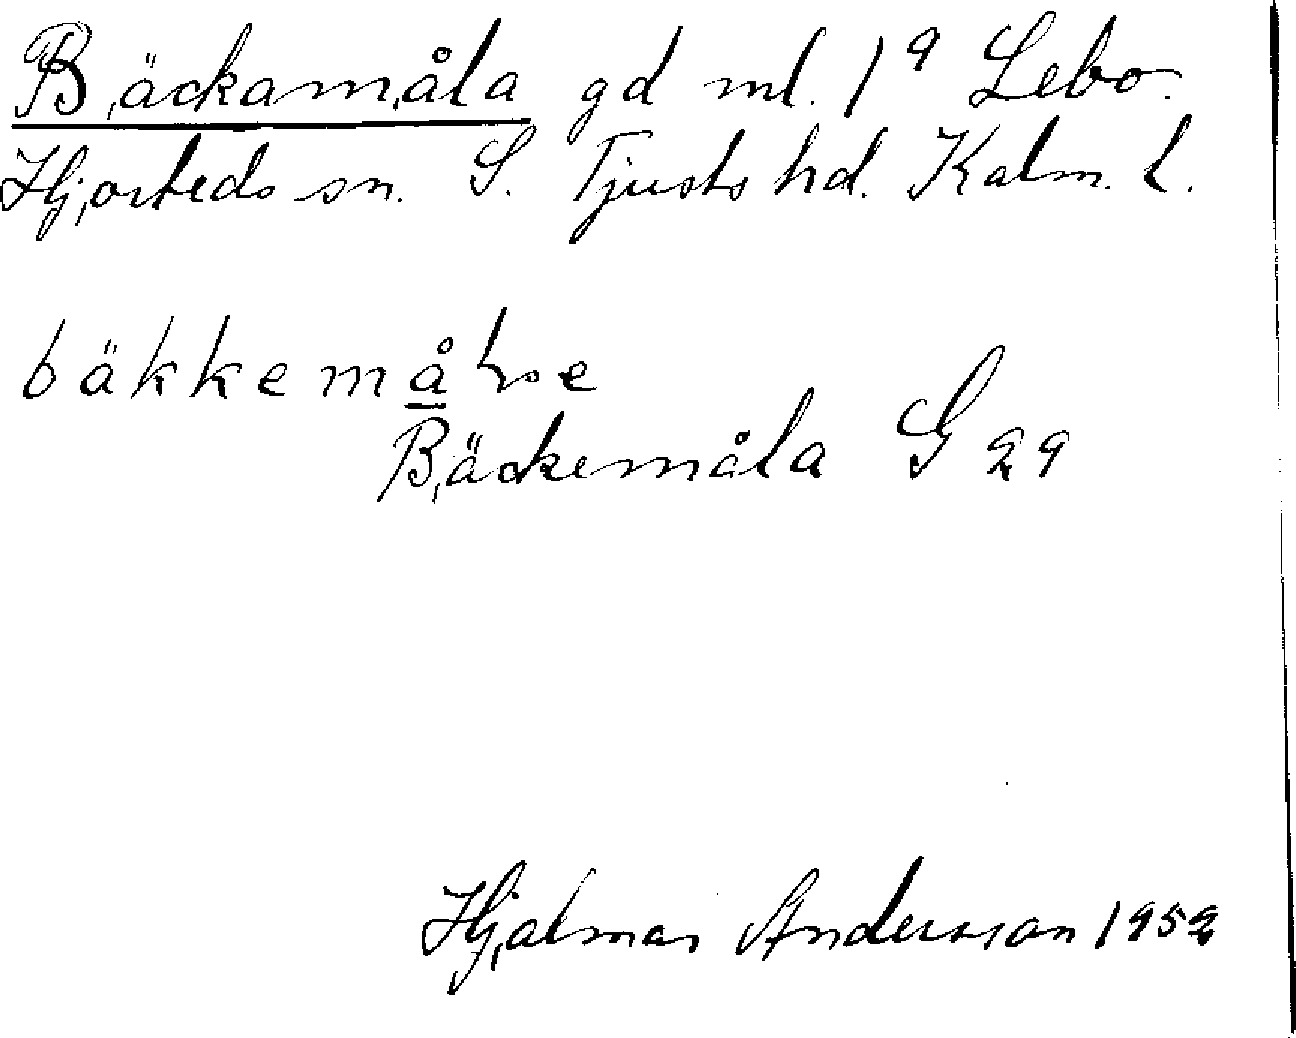 Bäckamåla gd ml. 1⁹ Lebo.
Hjorteds sn. S. Tjusts hd. Kalm. L.
bäkkemå
Bäckemåla G 29
Hjalmar Andersson 1952